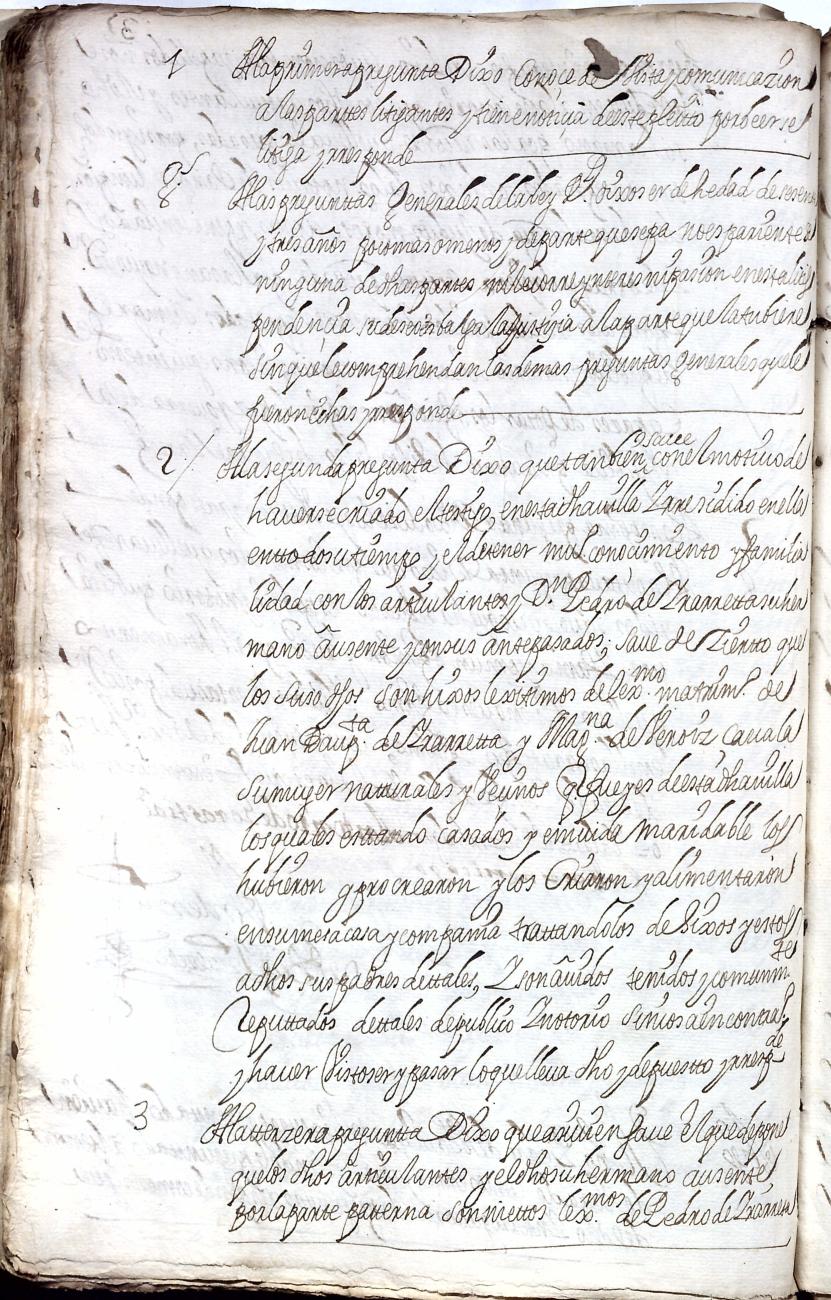 1 A la primera pregunta Dixo Conoce de Vista y comunicazion
a las partes litigantes y tiene noticia de este pleito por ver se
litiga y rresponde
g.s A las preguntas Generales de la ley D. dixo ser de hedad de sesenta
y tres años poco mas o menos y de parte que sepa no es pariente de
ninguna de dhas partes ni le corre ynteres ni pasion en esta litis
pendencia su deseo es balga la justizia a la parte que la tubiere
sin que le comprehendan las demas preguntas Generales que le
fueron echas y rresponde
2 / A la segunda pregunta Dixo que tanbien save con el motiuo de
hauerse criado el testigo en esta dha uilla Y rresidido en ella
en todo su tiempo, el de tener mul conocimiento y familia
lidad con los articulantes y D.n Pedro de Yrarretta su her
mano ausente y con sus antepasados; saue de Zierto que
los suso dhos son hixos lexitimos del ex.mo matrim.o de
Juan Baup.ta de Yrarretta y Mag.na de Veroiz Cauala
su muger naturales y Veζinos que de esta dha uilla
los quales estando casados y en uida maridable los
hubieron y procrearon y los Criaron y alimentaron
en su mesa casa y compania trattandolos de hixos y estos
a dhos sus padres de ttales, Y son auidos tenidos y comunm.te
Reputtados de ttales de publico Y notorio sin cosa en contra.o
y hauer Visto ser y pasar lo que lleua dho y depuestto y rresp.de
3 A la terzera pregunta Dixo que asi uien saue el que depone
que los dhos articulantes y el dho su hermano ausente
por la parte paterna son niettos lex.mos de Pedro de Yrarreta